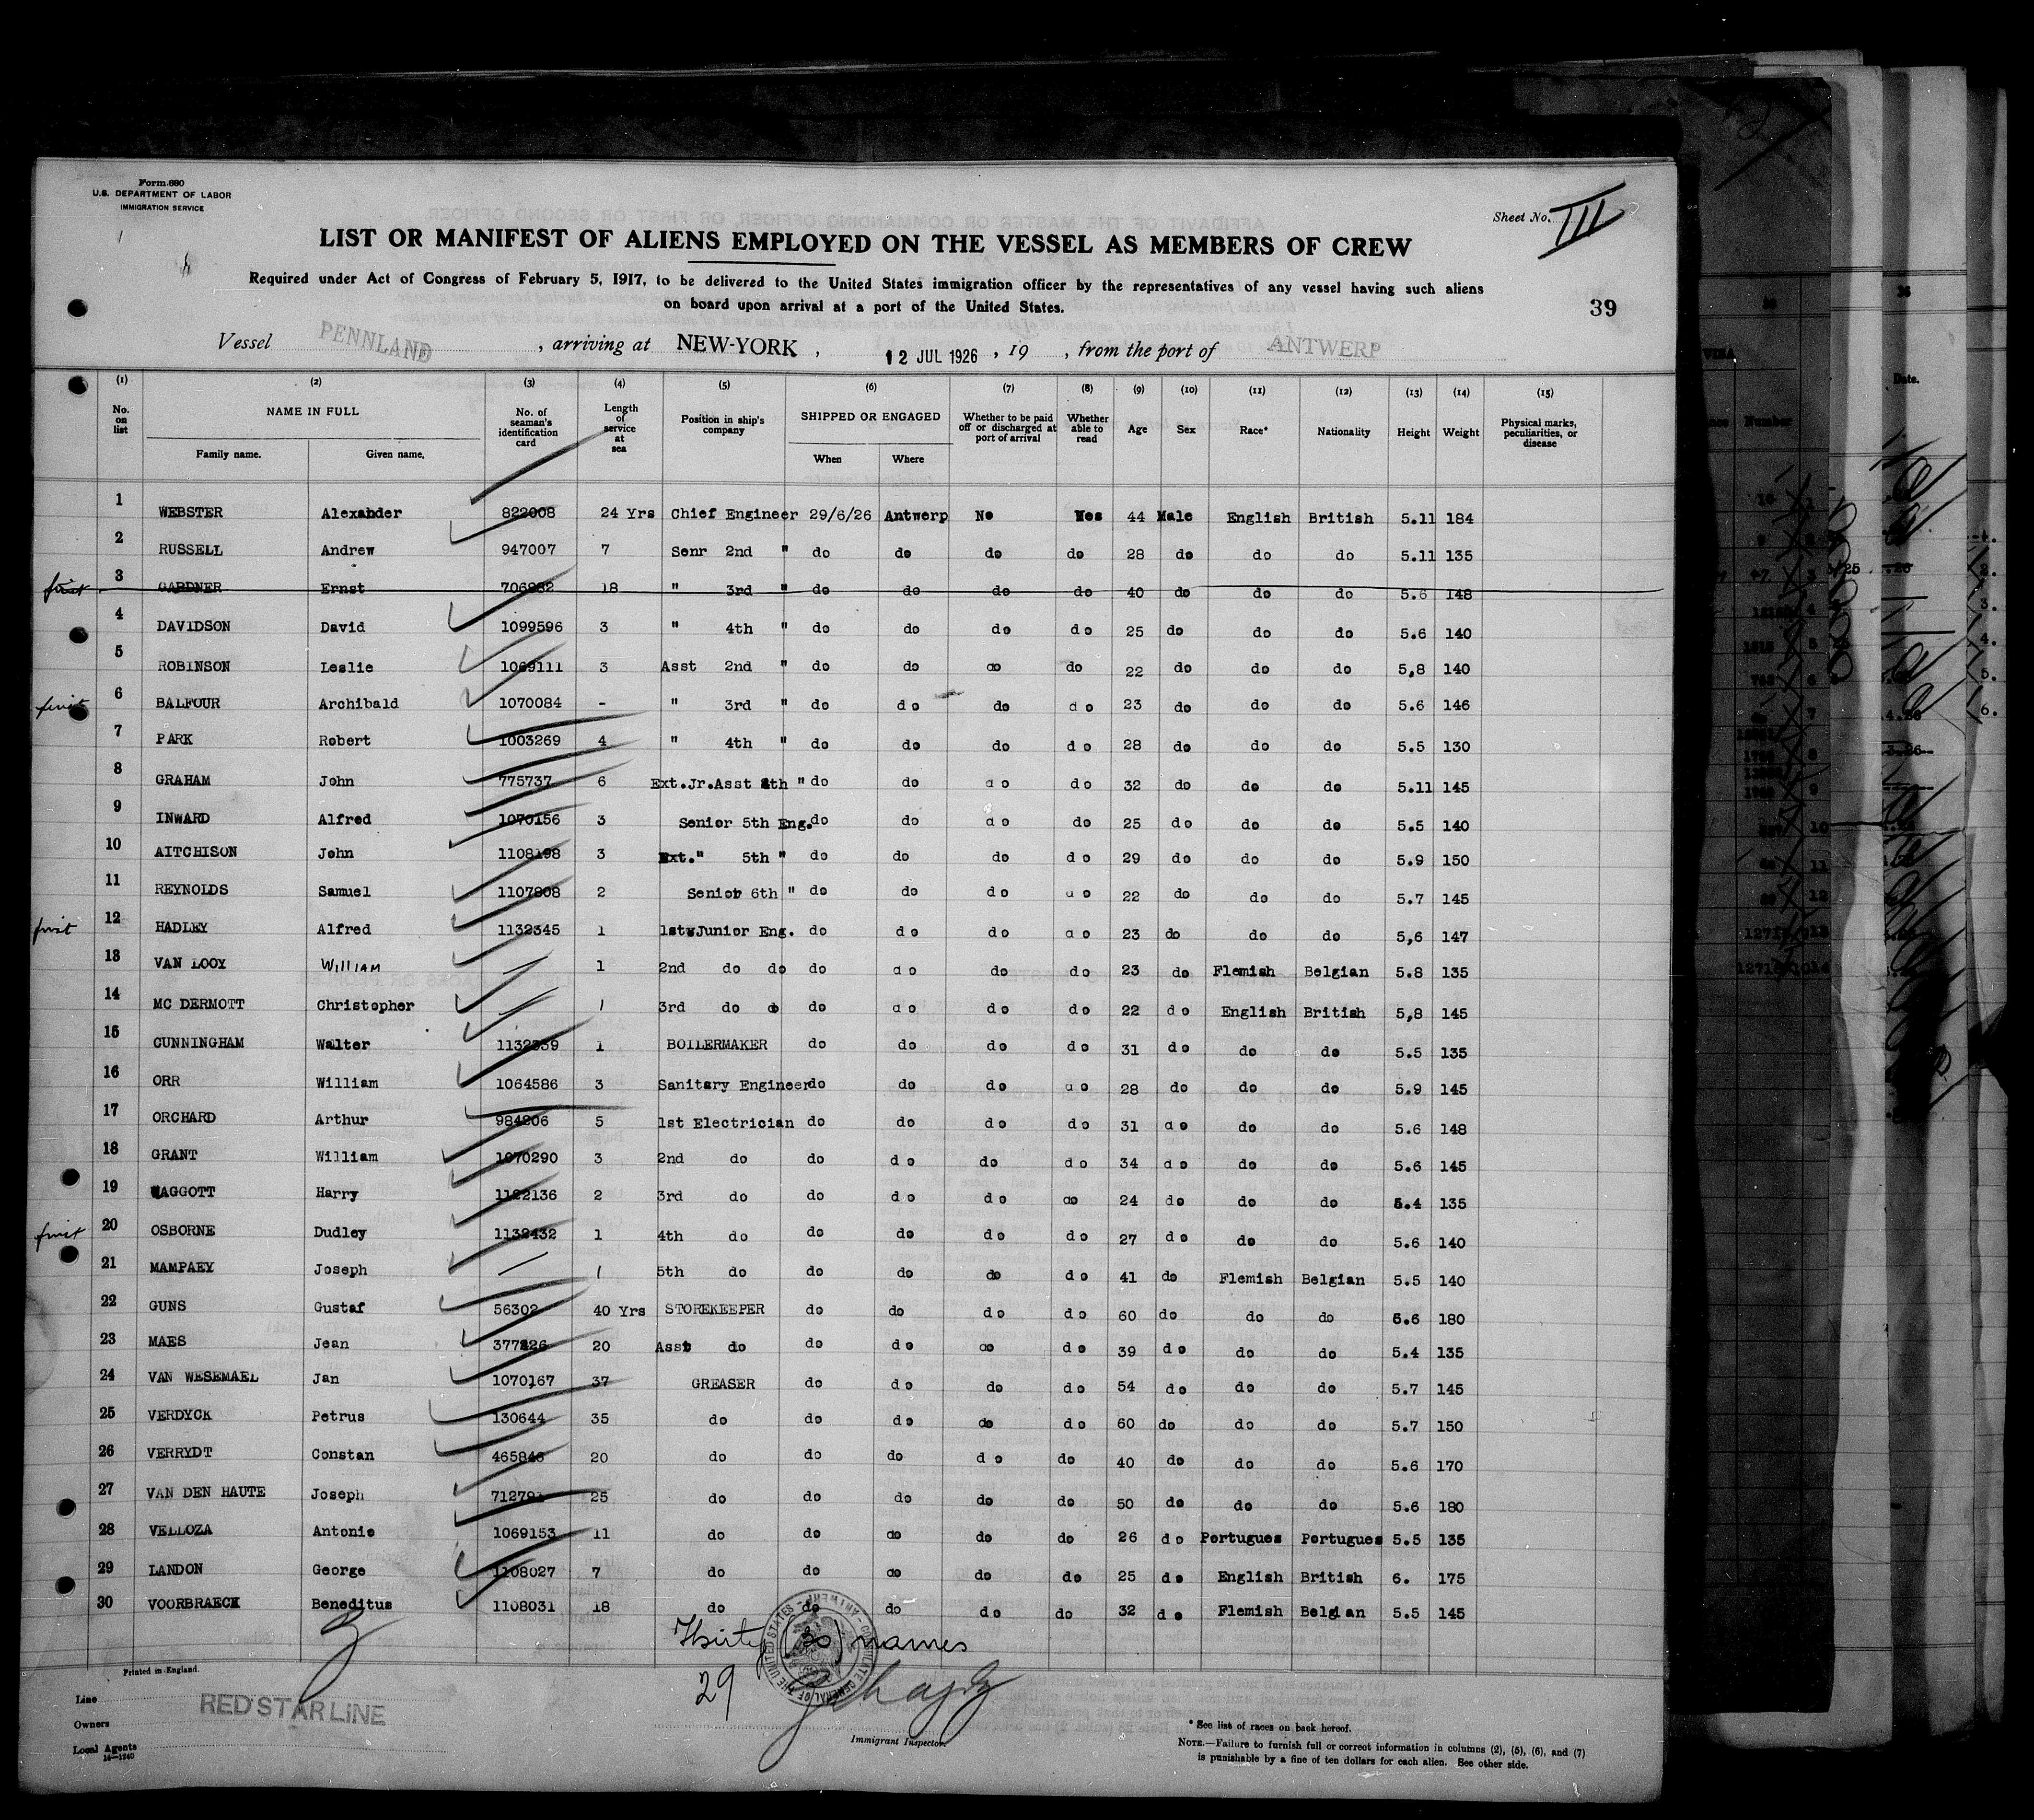 Form 680
U.S. DEPARTMENT OF LABOR
IMMIGRATION SERVICE
Sheet No. III
LIST OR MANIFEST OF ALIENS EMPLOYED ON THE VESSEL AS MEMBERS OF CREW
Required under Act of Congress of February 5, 1917, to be delivered to the United States immigration officer by the representatives of any vessel having such aliens
on board upon arrival at a port of the United States.
39
Vessel PENNLAND, arriving at NEW-YORK, 12 JUL 1926, 19 , from the port of ANTWERP
(1) (2) (3) (4) (5) (6) (7) (8) (9) (10) (11) (12) (13) (14) (15)
No. on list NAME IN FULL Family name. Given name. No. of seaman's identification card Length of service at sea Position in ship's company SHIPPED OR ENGAGED When Where Whether to be paid off or discharged at port of arrival Whether able to read Age Sex Race* Nationality Height Weight Physical marks, peculiarities, or disease
1 WEBSTER Alexander 822008 24 Yrs Chief Engineer 29/6/26 Antwerp No Yes 44 Male English British 5.11 184
2 RUSSELL Andrew 947007 7 Senr 2nd " do do do do 28 do do do 5.11 135
first 3 GARDNER Ernst 706882 18 " 3rd " do do do do 40 do do do 5.6 148
4 DAVIDSON David 1099596 3 " 4th " do do do do 25 do do do 5.6 140
5 ROBINSON Leslie 1069111 3 Asst 2nd " do do do do 22 do do do 5,8 140
first 6 BALFOUR Archibald 1070084 - " 3rd " do do do do 23 do do do 5.6 146
7 PARK Robert 1003269 4 " 4th " do do do do 28 do do do 5.5 130
8 GRAHAM John 775737 6 Ext.Jr.Asst 4th " do do do do 32 do do do 5.11 145
9 INWARD Alfred 1070156 3 Senior 5th Eng. do do do do 25 do do do 5.5 140
10 AITCHISON John 1108198 3 Ext." 5th " do do do do 29 do do do 5.9 150
11 REYNOLDS Samuel 1107808 2 Senior 6th " do do do do 22 do do do 5.7 145
first 12 HADLEY Alfred 1132345 1 1st Junior Eng. do do do do 23 do do do 5,6 147
13 VAN LOOY William — 1 2nd do do do do do do 23 do Flemish Belgian 5.8 135
14 MC DERMOTT Christopher — 1 3rd do do do do do do 22 do English British 5,8 145
15 CUNNINGHAM Walter 1132339 1 BOILERMAKER do do do do 31 do do do 5.5 135
16 ORR William 1064586 3 Sanitary Engineer do do do do 28 do do do 5.9 145
17 ORCHARD Arthur 984206 5 1st Electrician do do do do 31 do do do 5.6 148
18 GRANT William 1070290 3 2nd do do do do do 34 do do do 5.6 145
19 WAGGOTT Harry 1122136 2 3rd do do do do do 24 do do do 5.4 135
first 20 OSBORNE Dudley 1132432 1 4th do do do do do 27 do do do 5.6 140
21 MAMPAEY Joseph — 1 5th do do do do do 41 do Flemish Belgian 5.5 140
22 GUNS Gustaf 56302 40 Yrs STOREKEEPER do do do do 60 do do do 5.6 180
23 MAES Jean 377226 20 Asst do do do do do 39 do do do 5.4 135
24 VAN WESEMAEL Jan 1070167 37 GREASER do do do do 54 do do do 5.7 145
25 VERDYCK Petrus 130644 35 do do do do do 60 do do do 5.7 150
26 VERRYDT Constan 465846 20 do do do do do 40 do do do 5.6 170
27 VAN DEN HAUTE Joseph 712791 25 do do do do do 50 do do do 5.6 180
28 VELLOZA Antonio 1069153 11 do do do do do 26 do Portugues Portugues 5.5 135
29 LANDON George 1108027 7 do do do do do 25 do English British 6. 175
30 VOORBRAECK Beneditus 1108031 18 do do do do do 32 do Flemish Belgian 5.5 145
Thirty (30) names
29
Printed in England.
Line
RED STAR LINE
Owners
Local Agents
14—1240
Immigrant Inspector.
* See list of races on back hereof.
NOTE.—Failure to furnish full or correct information in columns (2), (5), (6), and (7)
is punishable by a fine of ten dollars for each alien. See other side.